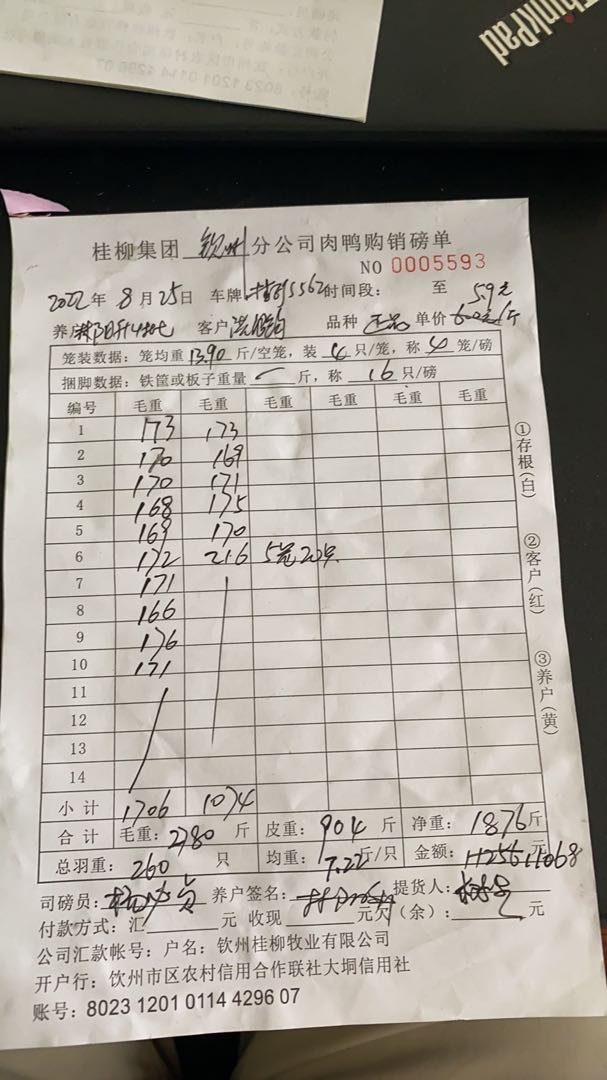 ThinkPad
账号：8023 1201 0114 4296 07
桂柳集团 钦州 分公司肉鸭购销磅单
NO 0005593
2022年 8月25日 车牌 5562 时间段： 至
5.9元
养户 客户 品种 正品 单价 6.00元/斤
笼装数据：笼均重 13.90 斤/空笼，装 4 只/笼，称 4 笼/磅
捆脚数据：铁筐或板子重量 斤，称 16 只/磅
编号 毛重 毛重 毛重 毛重 毛重 毛重
1 173 173
2 170 169
3 170 171
4 168 175
5 169 170
6 172 216 5笼20只
7 171
8 166
9 176
10 171
11
12
13
14
小计 1706 1074
合计 毛重：2780 斤 皮重：904 斤 净重：1876 斤
总羽重：260 只 均重：7.22 斤/只 金额：11256 11068 元
司磅员： 养户签名： 提货人：
付款方式：汇 元 收现 元欠（余）： 元
公司汇款帐号：户名：钦州桂柳牧业有限公司
开户行：钦州市区农村信用合作联社大垌信用社
账号：8023 1201 0114 4296 07
①存根（白）
②客户（红）
③养户（黄）